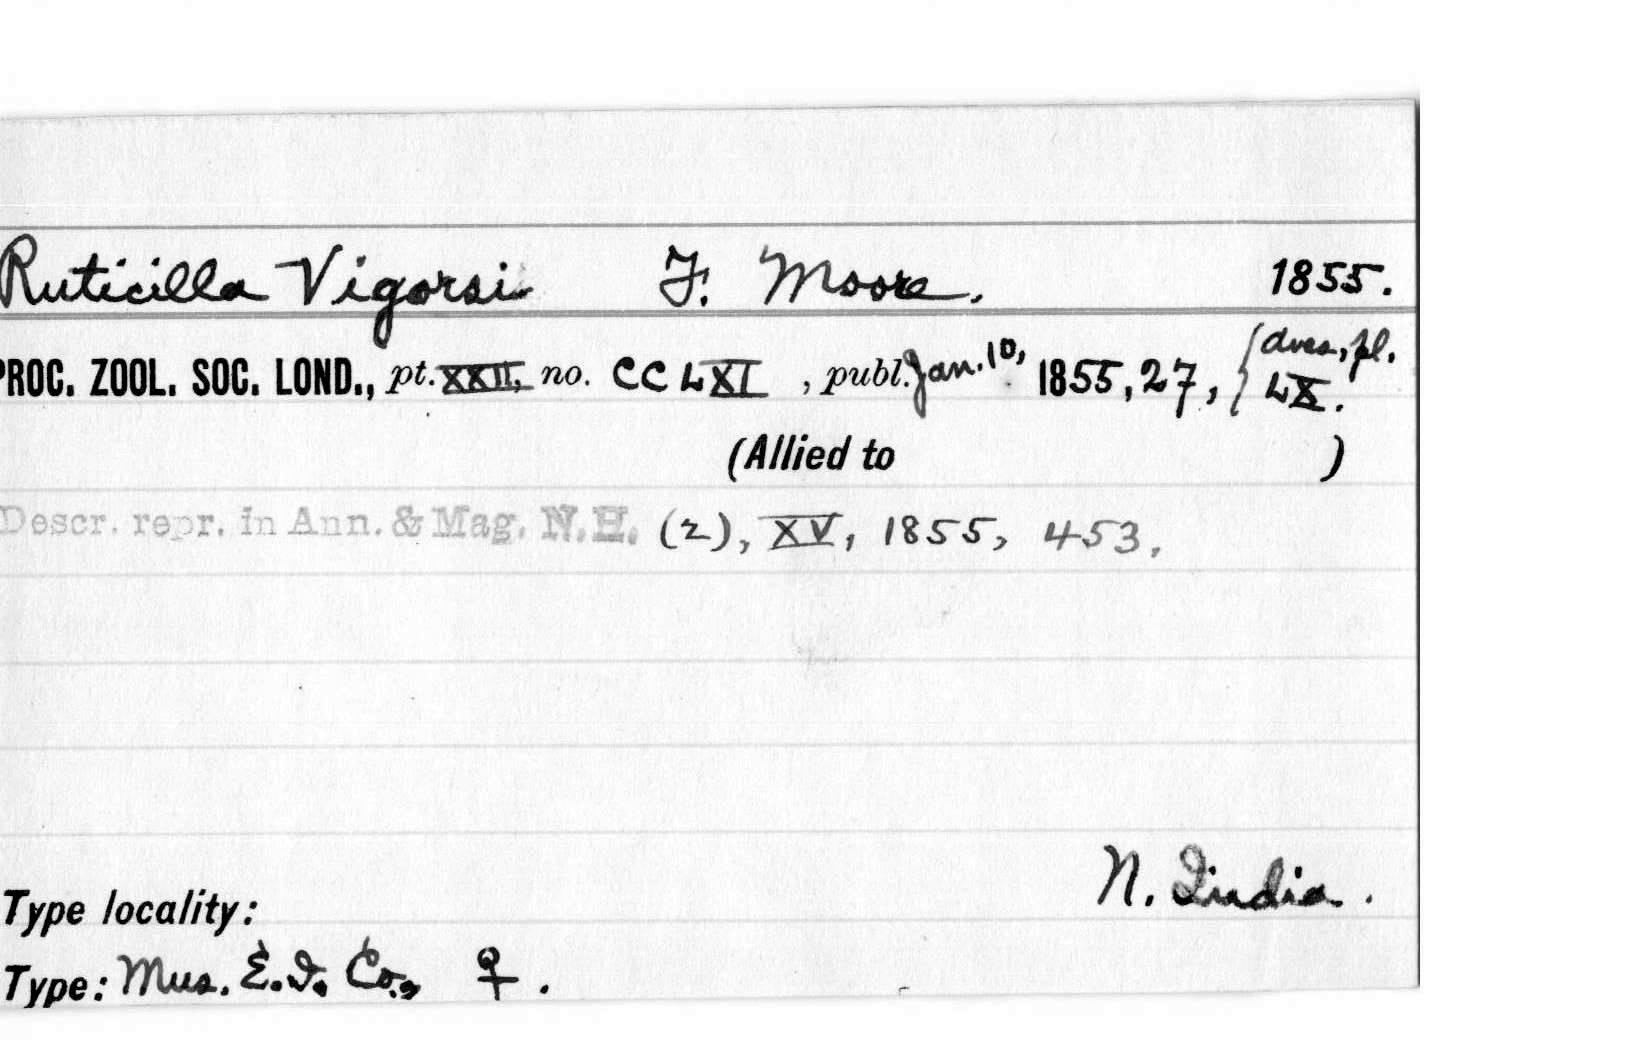 Ruticilla Vigorsi F. Moore. 1855.
PROC. ZOOL. SOC. LOND., pt. XXII, no. CCLXI, publ. Jan. 10, 1855, 27, { Aves, pl. LX.
(Allied to )
Descr. repr. in Ann. & Mag. N.H. (2), XV, 1855, 453.
N. India.
Type locality:
Type: Mus. E.I. Co., ♀.